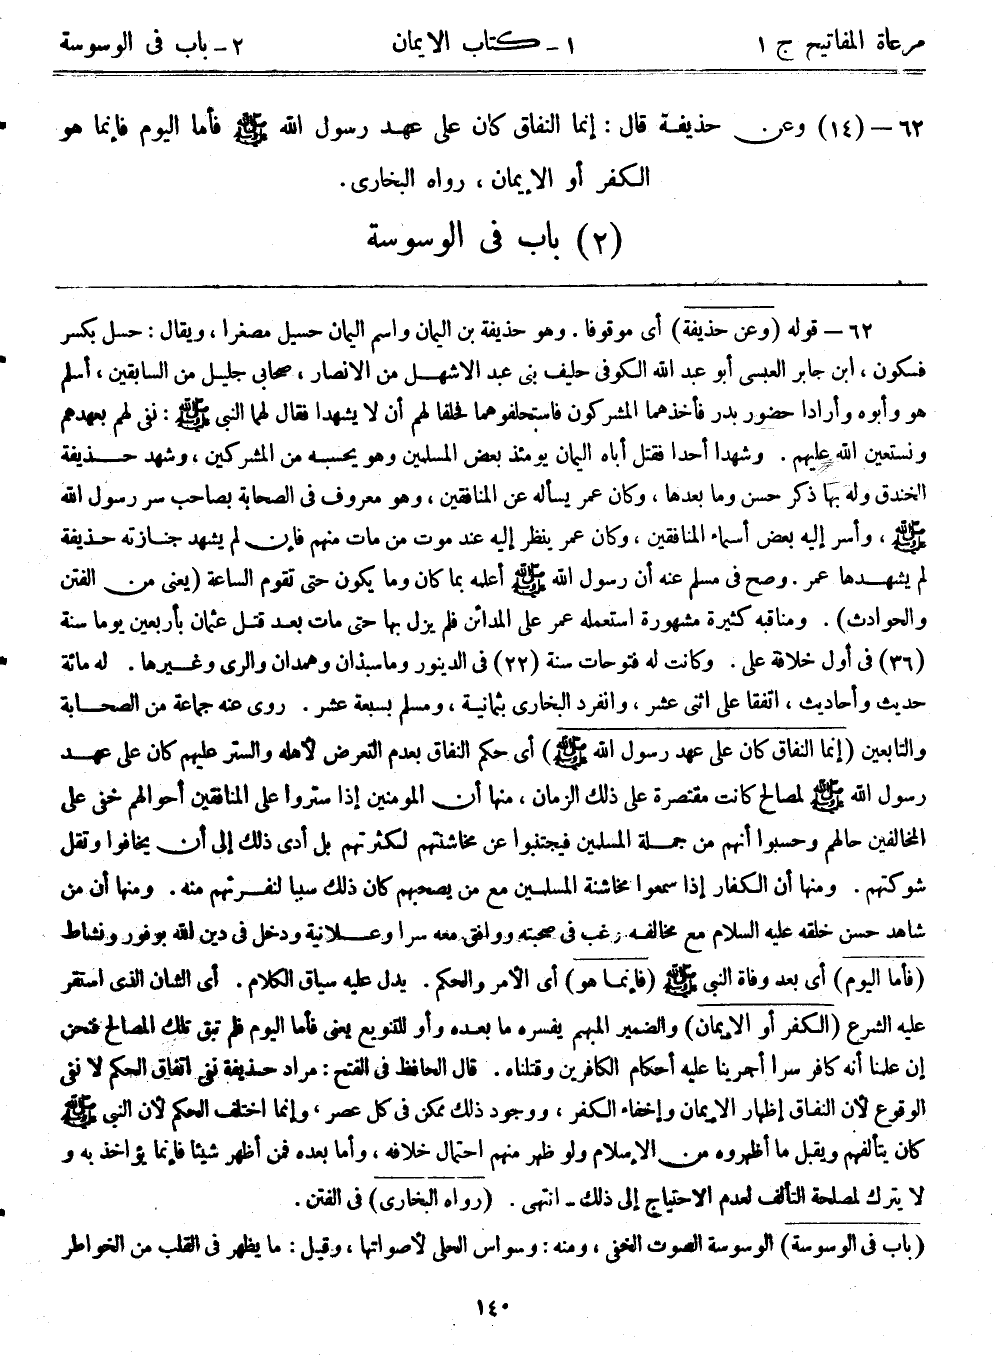 مرعاة المفاتيح ج ١ ١- كتاب الايمان ٢- باب فى الوسوسة
٦٢ – (١٤) وعن حذيفة قال : إنما النفاق كان على عهد رسول الله ﷺ فأما اليوم فإنما هو
الكفر أو الإيمان ، رواه البخارى.
(٢) باب فى الوسوسة
٦٢ – قوله (وعن حذيفة) أى موقوفا . وهو حذيفة بن اليمان واسم اليمان حسيل مصغرا ، ويقال : حسل بكسر
فسكون ، ابن جابر العبسى أبو عبد الله الكوفى حليف بنى عبد الاشهل من الانصار ، صحابى جليل من السابقين ، أسلم
هو وأبوه وأرادا حضور بدر فأخذهما المشركون فاستحلفوهما فحلفا لهم أن لا يشهدا فقال لهما النبي ﷺ : نفى لهم بعهدهم
ونستعين الله عليهم . وشهدا أحدا فقتل أباه اليمان يومئذ بعض المسلمين وهو يحسبه من المشركين ، وشهد حذيفة
الخندق وله بها ذكر حسن وما بعدها ، وكان عمر يسأله عن المنافقين ، وهو معروف فى الصحابة بصاحب سر رسول الله
ﷺ ، وأسر إليه بعض أسماء المنافقين ، وكان عمر ينظر إليه عند موت من مات منهم فإن لم يشهد جنازته حذيفة
لم يشهدها عمر . وصح فى مسلم عنه أن رسول الله ﷺ أعلمه بما كان وما يكون حتى تقوم الساعة (يعنى من الفتن
والحوادث) . ومناقبه كثيرة مشهورة استعمله عمر على المدائن فلم يزل بها حتى مات بعد قتل عثمان بأربعين يوما سنة
(٣٦) فى أول خلافة على . وكانت له فتوحات سنة (٢٢) فى الدينور وماسبذان وهمدان والرى وغيرها . له مائة
حديث وأحاديث ، اتفقا على اثنى عشر ، وانفرد البخارى بثمانية ، ومسلم بسبعة عشر . روى عنه جماعة من الصحابة
والتابعين (إنما النفاق كان على عهد رسول الله ﷺ) أى حكم النفاق بعدم التعرض لأهله والستر عليهم كان على عهد
رسول الله ﷺ لمصالح كانت مقتصرة على ذلك الزمان ، منها أن المومنين إذا ستروا على المنافقين أحوالهم خفى على
المخالفين حالهم وحسبوا أنهم من جملة المسلمين فيجتنبوا عن مخاشنتهم لكثرتهم بل أدى ذلك إلى أن يخافوا وتقل
شوكتهم . ومنها أن الكفار إذا سمعوا مخاشنة المسلمين مع من يصحبهم كان ذلك سببا لنفرتهم منه . ومنها أن من
شاهد حسن خلقه عليه السلام مع مخالفه رغب فى صحبته ووافق معه سرا وعلانية ودخل فى دين الله بوفور ونشاط
(فأما اليوم) أى بعد وفاة النبي ﷺ (فإنما هو) أى الأمر والحكم . يدل عليه سياق الكلام . أى الشان الذى استقر
عليه الشرع (الكفر أو الإيمان) والضمير المبهم يفسره ما بعده وأو للتنويع يعنى فأما اليوم فلم تبق تلك المصالح فنحن
إن علمنا أنه كافر سرا أجرينا عليه أحكام الكافرين وقتلناه . قال الحافظ فى الفتح : مراد حذيفة نفى اتفاق الحكم لا نفى
الوقوع لأن النفاق إظهار الإيمان وإخفاء الكفر ، ووجود ذلك ممكن فى كل عصر ، وإنما اختلف الحكم لأن النبي ﷺ
كان يتألفهم ويقبل ما أظهروه من الإسلام ولو ظهر منهم احتمال خلافه ، وأما بعده فمن أظهر شيئا فإنما يؤاخذ به و
لا يترك لمصلحة التألف لعدم الاحتياج إلى ذلك - انتهى . (رواه البخارى) فى الفتن .
(باب فى الوسوسة) الوسوسة الصوت الخفى ، ومنه : وسواس الحلى لأصواتها ، وقيل : ما يظهر فى القلب من الخواطر
١٤٠